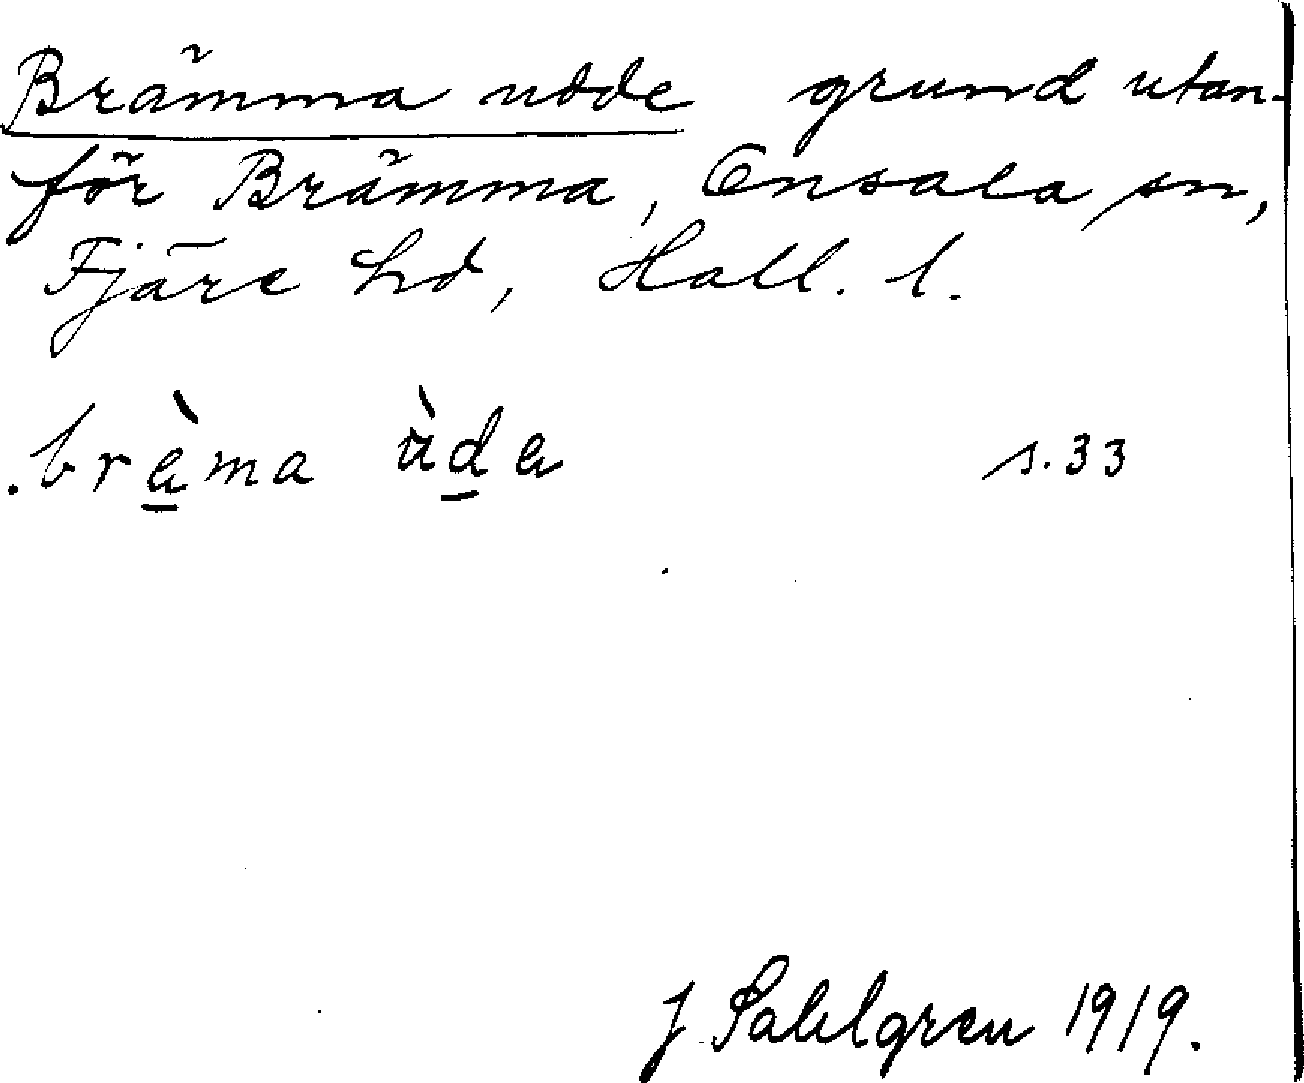 Brämma udde grund utan-
för Brämma, Onsala sn,
Fjäre hd, Hall. l.
.bræ̀ma ùdə s. 33
J. Sahlgren 1919.